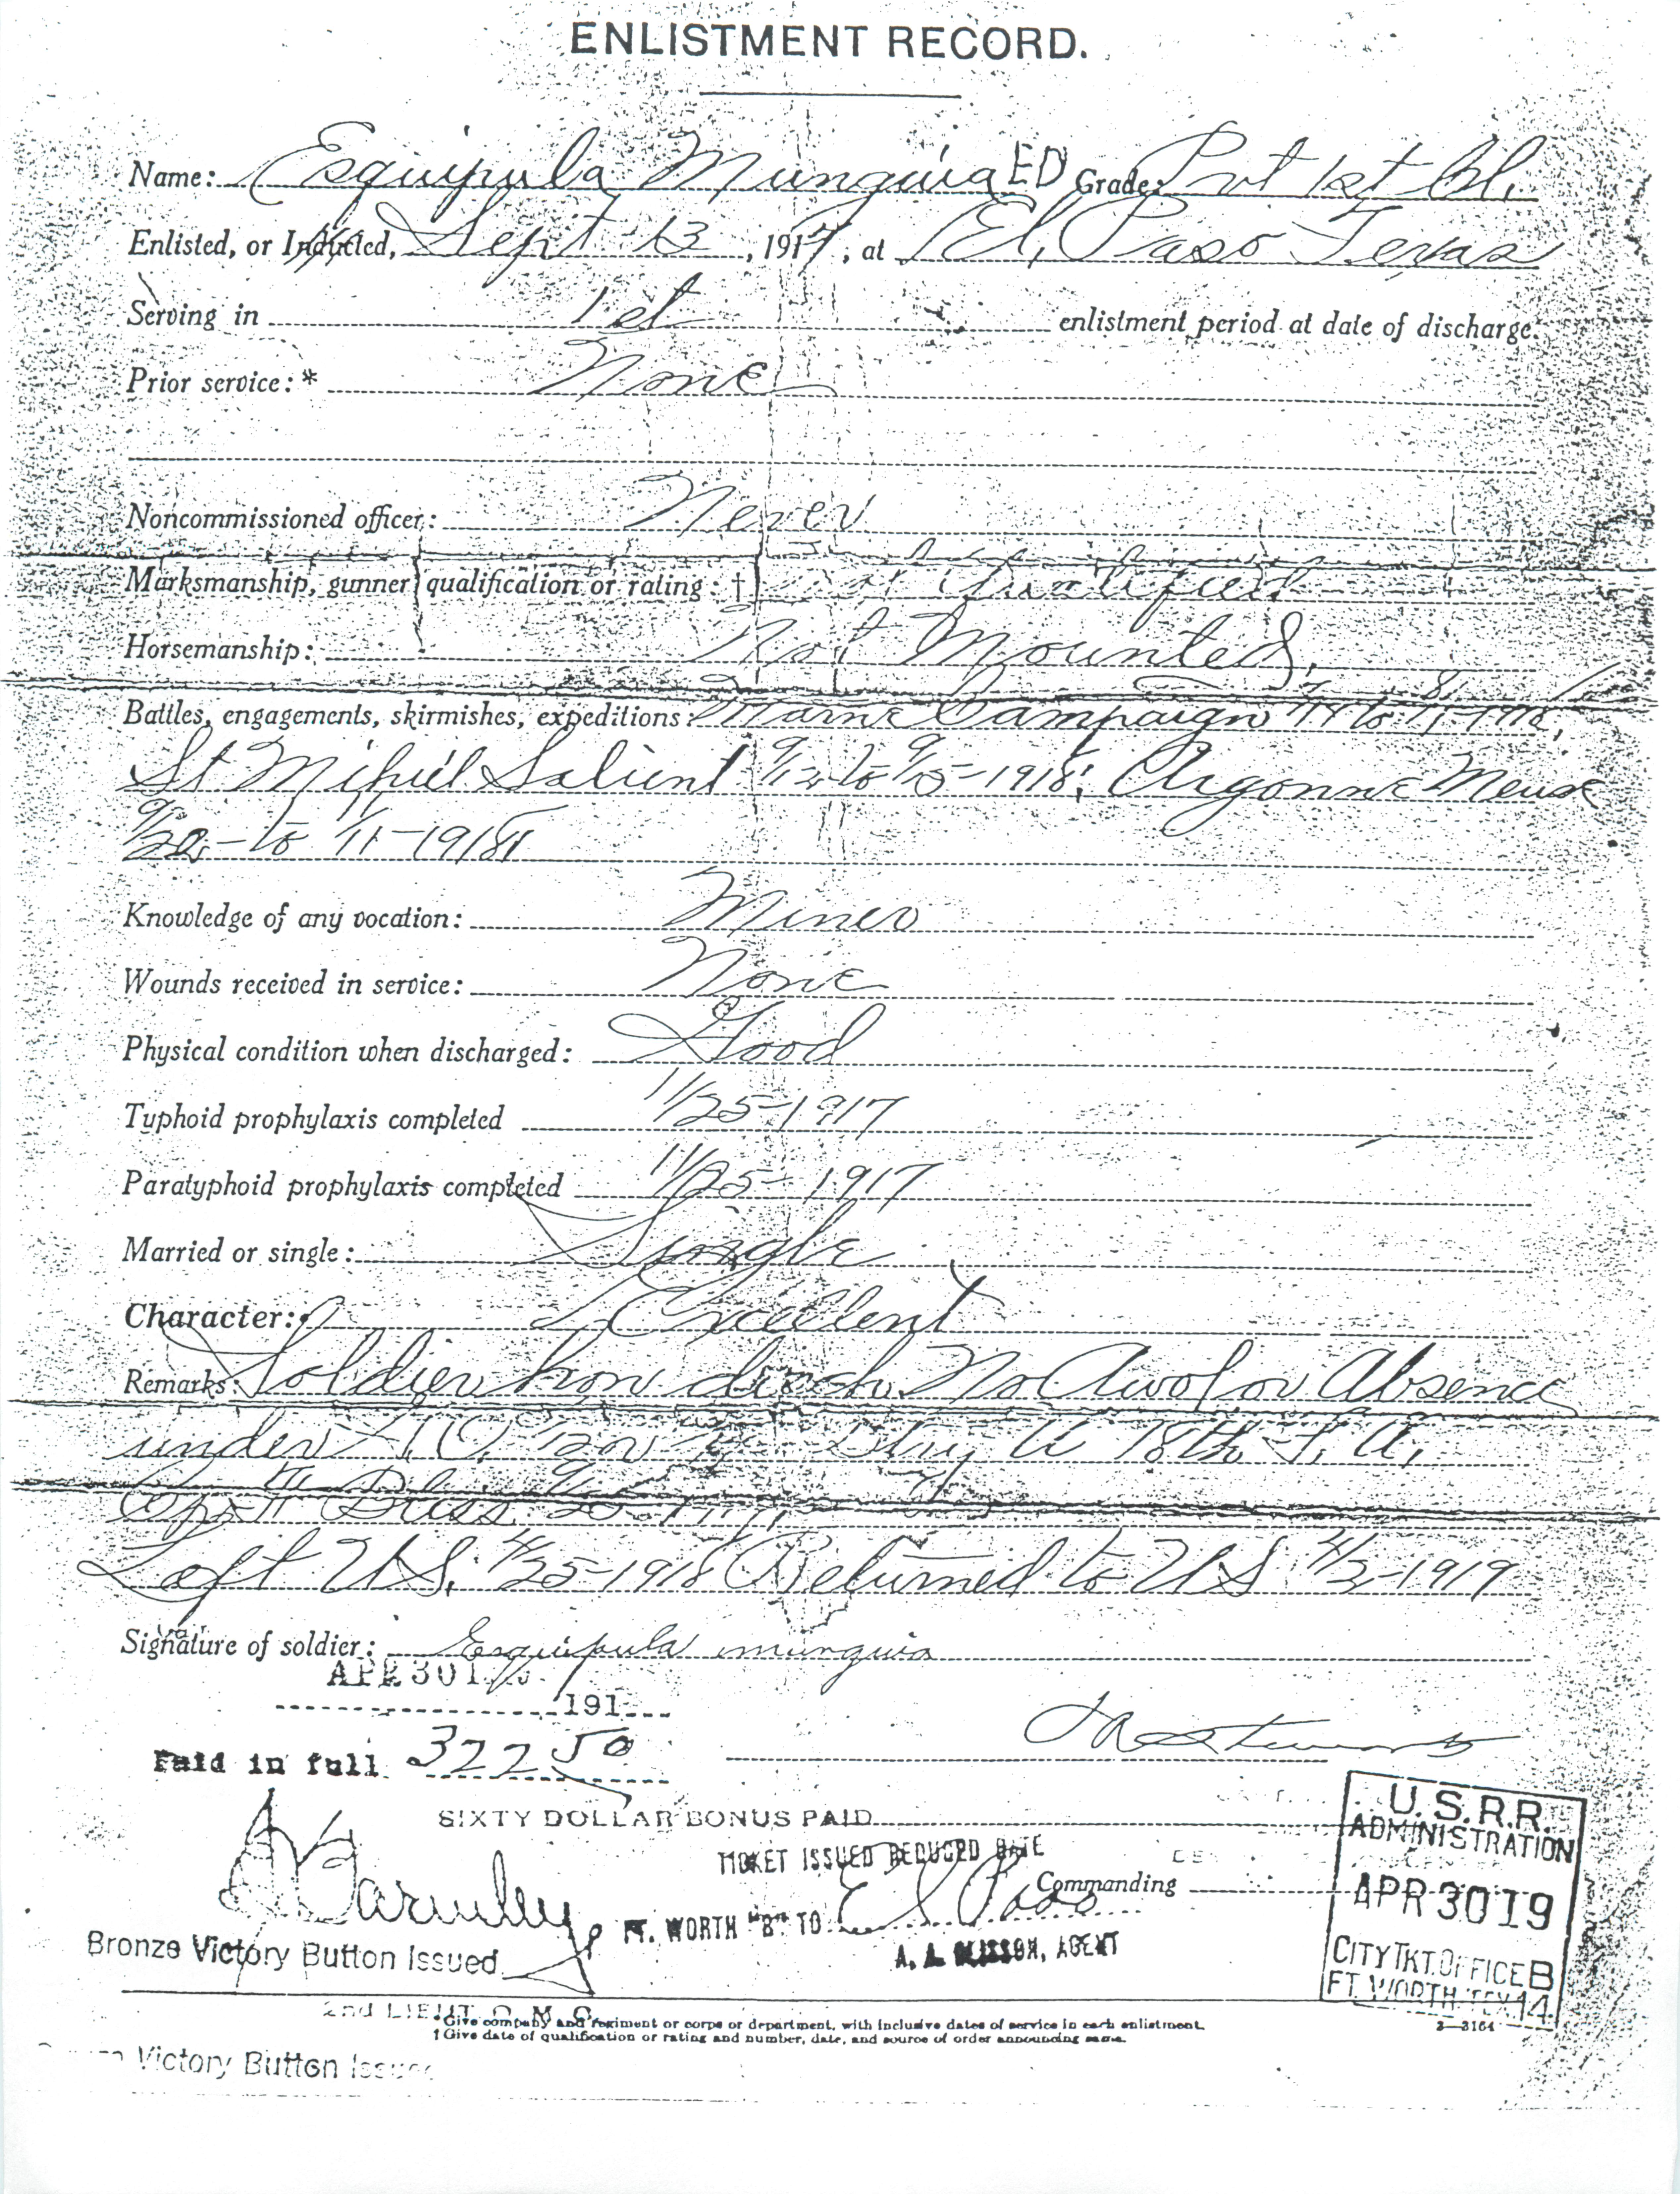 ENLISTMENT RECORD.
Name: Esquipula Munguia ED Grade: Pvt 1st Cl.
Enlisted, or Inducted, Sept 13, 1917, at El Paso Texas
Serving in 1st enlistment period at date of discharge.
Prior service:* None
Noncommissioned officer: Never
Marksmanship, gunner qualification or rating: † Not Qualified
Horsemanship: Not Mounted.
Battles, engagements, skirmishes, expeditions: Marne Campaign
St Mihiel Salient 9/12 to 9/15-1918; Argonne Meuse
to 11/11-1918
Knowledge of any vocation: Miner
Wounds received in service: None
Physical condition when discharged: Good
Typhoid prophylaxis completed 11/25-1917
Paratyphoid prophylaxis completed 11/25-1917
Married or single: Single
Character: Excellent
Remarks: Soldier hon disch. No Awol or Absence
under G.O. 18th F. A.
Left U.S. 4/25-1918 Returned to U S 4/3-1919
Signature of soldier: Esquipula munguia
APR 30
191
Paid in full 322 50
SIXTY DOLLAR BONUS PAID
TICKET ISSUED REDUCED RATE
Commanding
FT. WORTH "B" TO El Paso
AGENT
Bronze Victory Button Issued
2nd LIEUT. Q. M. C.
U.S.R.R.
ADMINISTRATION
APR 30 19
CITY TKT. OFFICE B
FT. WORTH TEX 14
*Give company and regiment or corps or department, with inclusive dates of service in each enlistment.
†Give date of qualification or rating and number, date, and source of order announcing same.
3—3164
Victory Button Issued